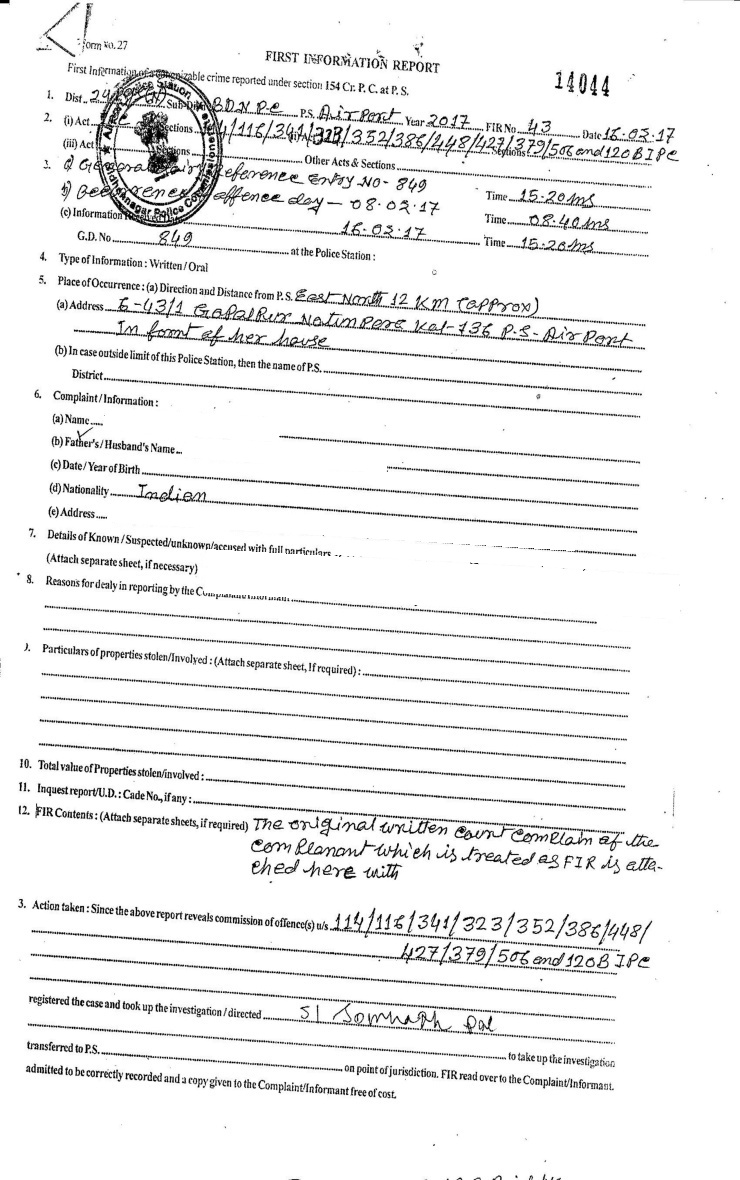 Form No. 27
FIRST INFORMATION REPORT
First Information of a cognizable crime reported under section 154 Cr. P. C. at P. S.
14044
1. Dist. 24 Sub-Div. BDN P.C P.S. Air Port Year 2017 FIR No. 43 Date 16.03.17
2. (i) Act Sections 114/116/341/323/352/386/448/427/379/506 and 120B IPC
(iii) Act Sections Other Acts & Sections
3. a) General Diary reference Entry No- 849 Time 15-20 hrs
b) Occurrence offence day - 08.03.17 Time 08-40 hrs
(c) Information 16.03.17
G.D. No. 849 at the Police Station : Time 15-20 hrs
4. Type of Information : Written / Oral
5. Place of Occurrence : (a) Direction and Distance from P. S. East North 12 KM (approx)
(a) Address E-43/1 GoPalPur Natun Para Kol-136 P.S- Air Port
In foront of her house
(b) In case outside limit of this Police Station, then the name of P.S.
District
6. Complaint / Information :
(a) Name
(b) Father's / Husband's Name
(c) Date / Year of Birth
(d) Nationality Indian
(e) Address
7. Details of Known / Suspected/unknown/accused with full particulars
(Attach separate sheet, if necessary)
8. Reasons for dealy in reporting by the
). Particulars of properties stolen/Involyed : (Attach separate sheet, If required) :
10. Total value of Properties stolen/involved :
11. Inquest report/U.D. : Cade No., if any :
12. FIR Contents : (Attach separate sheets, if required) The original written Court Complain of the
Complanant which is treated as FIR is atta-
ched here with
3. Action taken : Since the above report reveals commission of offence(s) u/s 114/116/341/323/352/386/448/
427/379/506 and 120B IPC
registered the case and took up the investigation / directed SI Somnath Pal
to take up the investigation
transferred to P.S. on point of jurisdiction. FIR read over to the Complaint/Informant.
admitted to be correctly recorded and a copy given to the Complaint/Informant free of cost.